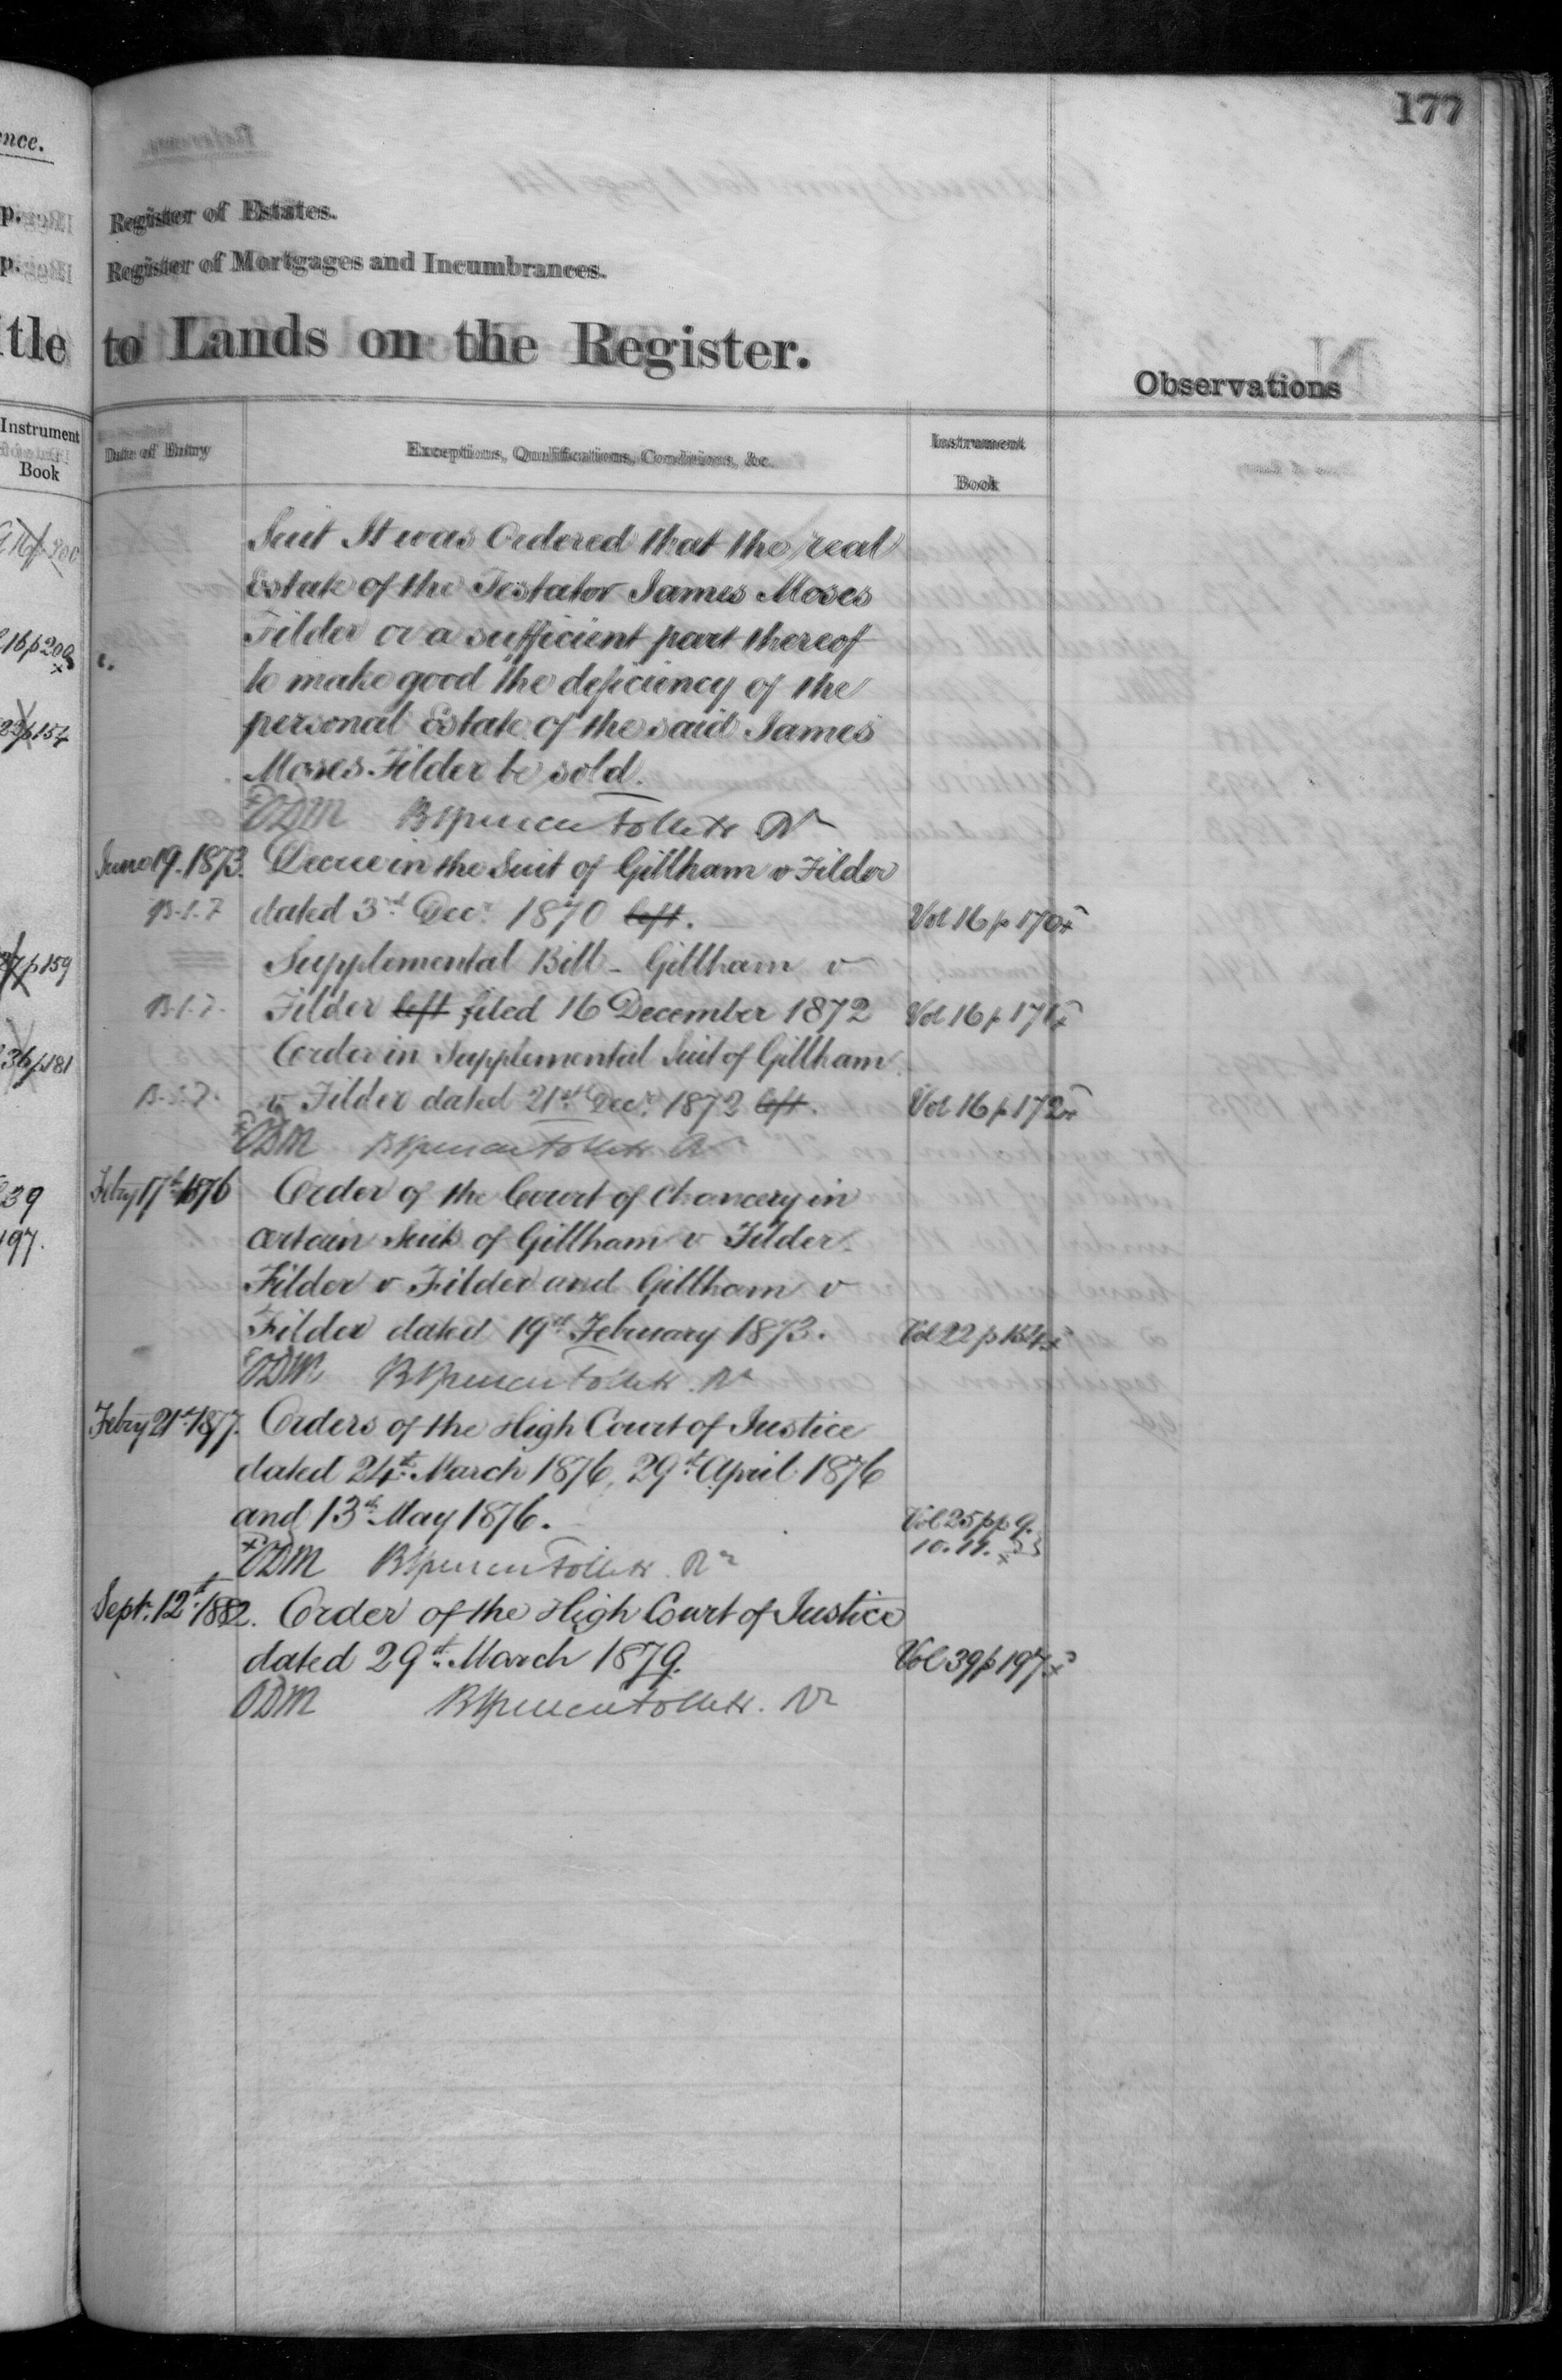 177
Register of Estates.
Register of Mortgages and Incumbrances.
to Lands on the Register.
Observations
Date of Entry
Exceptions, Qualifications, Conditions, &c.
Instrument
Book
Suit It was Ordered that the real
Estate of the Testator James Moses
Filder or a sufficient part thereof
to make good the deficiency of the
personal Estate of the said James
Moses Filder be sold.
ODM
June 19. 1873. Decree in the Suit of Gillham v Filder
B.S.F. dated 3rd Decr. 1870 left. Vol 16 p 170
Supplemental Bill - Gillham v
B.S.F. Filder left filed 16 December 1872 Vol 16 p 171
Order in Supplemental Suit of Gillham
B.S.F. v Filder dated 21st Decr. 1872 left. Vol 16 p 172
ODM
Febry 17th 1876 Order of the Court of Chancery in
certain Suits of Gillham v Filder
Filder v Filder and Gillham v
Filder dated 19th February 1873. Vol 22 p 154
ODM
Febry 21st 1877. Orders of the High Court of Justice
dated 24th March 1876, 29th April 1876
and 13th May 1876. Vol 25 pp 9.
10. 11.
ODM
Septr. 12th 1882. Order of the High Court of Justice
dated 29th March 1879. Vol 39 p 197
ODM
ence.
p.
p.
tle
Instrument
Book
16 p 200
16 p 200
22 p 154
p 159
36 p 181
39
197.